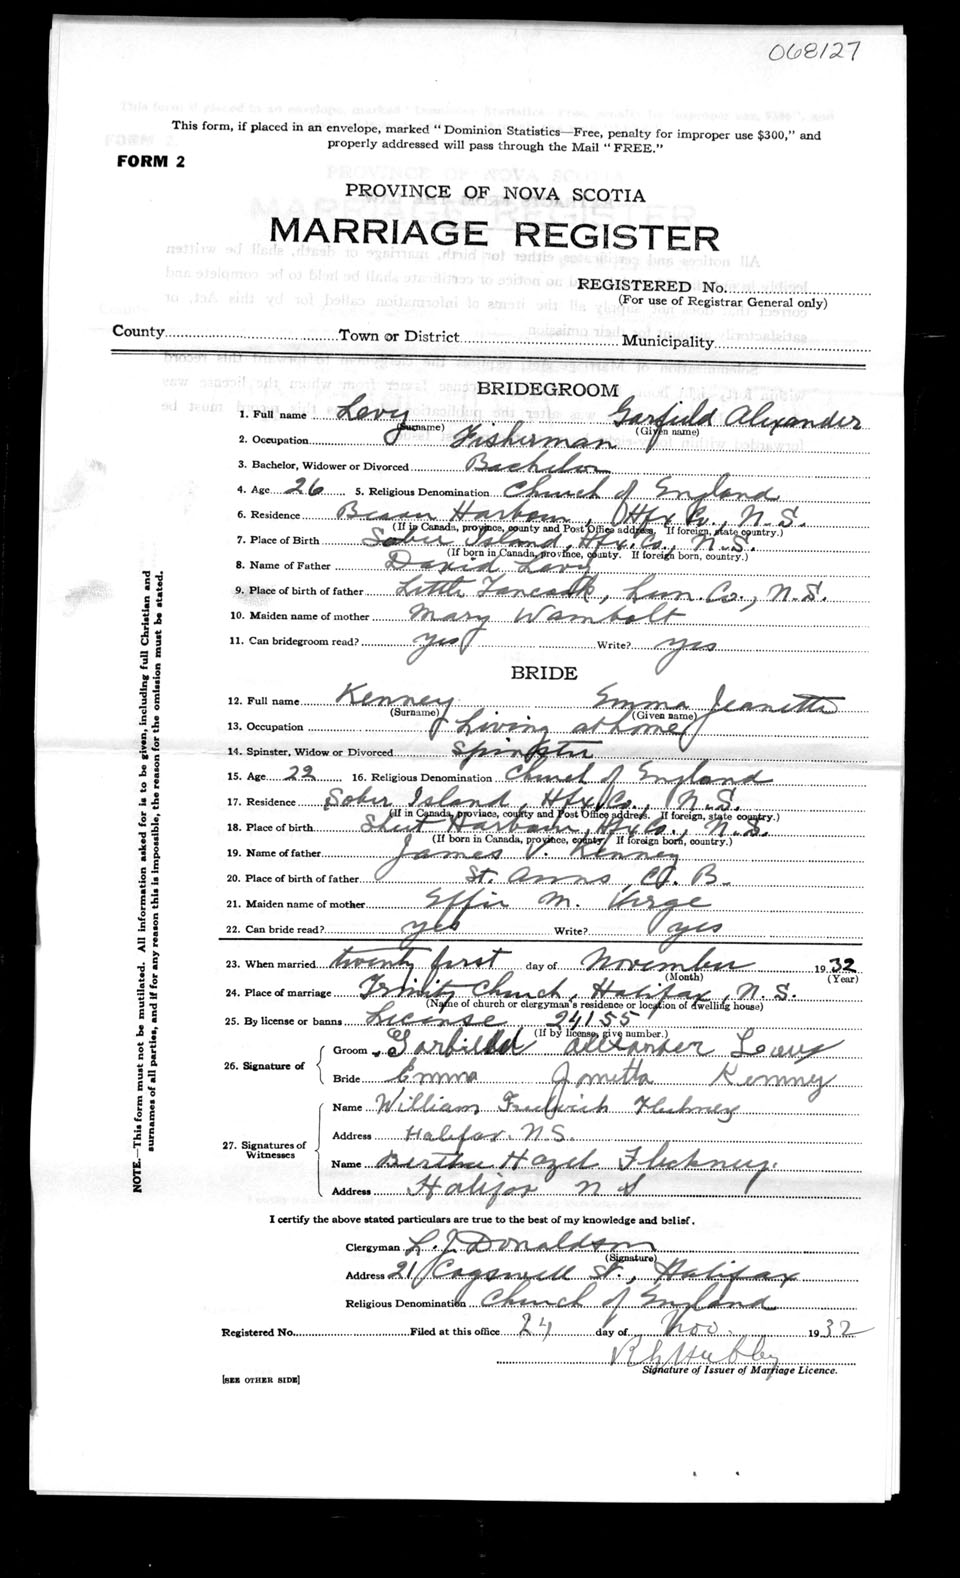 068127
This form, if placed in an envelope, marked "Dominion Statistics—Free, penalty for improper use $300," and
properly addressed will pass through the Mail "FREE."
FORM 2
PROVINCE OF NOVA SCOTIA
MARRIAGE REGISTER
REGISTERED No.
(For use of Registrar General only)
County Town or District Municipality
BRIDEGROOM
1. Full name Levy Garfield Alexander
(Surname) (Given name)
2. Occupation Fisherman
3. Bachelor, Widower or Divorced Bachelor
4. Age 26 5. Religious Denomination Church of England
6. Residence Beaver Harbour, Hfx Co., N.S.
(If in Canada, province, county and Post Office address. If foreign, state country.)
7. Place of Birth Sober Island, Hfx. Co., N.S.
(If born in Canada, province, county. If foreign born, country.)
8. Name of Father David Levy
9. Place of birth of father Little Tancook, Lun. Co., N.S.
10. Maiden name of mother Mary Wambolt
11. Can bridegroom read? yes Write? yes
BRIDE
12. Full name Kenney Emma Jeanette
(Surname) (Given name)
13. Occupation Living at home
14. Spinster, Widow or Divorced Spinster
15. Age 22 16. Religious Denomination Church of England
17. Residence Sober Island, Hfx Co., N.S.
(If in Canada, province, county and Post Office address. If foreign, state country.)
18. Place of birth Sheet Harbour, Hfx Co., N.S.
(If born in Canada, province, county. If foreign born, country.)
19. Name of father James V. Kenney
20. Place of birth of father St. Anns, C. B.
21. Maiden name of mother Effie M. Verge
22. Can bride read? yes Write? yes
23. When married twenty first day of November 1932
(Month) (Year)
24. Place of marriage Trinity Church, Halifax, N.S.
(Name of church or clergyman's residence or location of dwelling house)
25. By license or banns License 24155
(If by license, give number.)
26. Signature of Groom Garfield Alexander Levy
Bride Emma Jonetta Kenney
27. Signatures of Witnesses
Name William Fredrick Fleckney
Address Halifax. N.S.
Name Bertha Hazel Fleckney.
Address Halifax N S
I certify the above stated particulars are true to the best of my knowledge and belief.
Clergyman L. J. Donaldson
(Signature)
Address 21 Cogswell St., Halifax
Religious Denomination Church of England
Registered No. Filed at this office 24 day of Nov. 1932
Signature of Issuer of Marriage Licence.
[SEE OTHER SIDE]
NOTE.—This form must not be mutilated. All information asked for is to be given, including full Christian and
surnames of all parties, and if for any reason this is impossible, the reason for the omission must be stated.